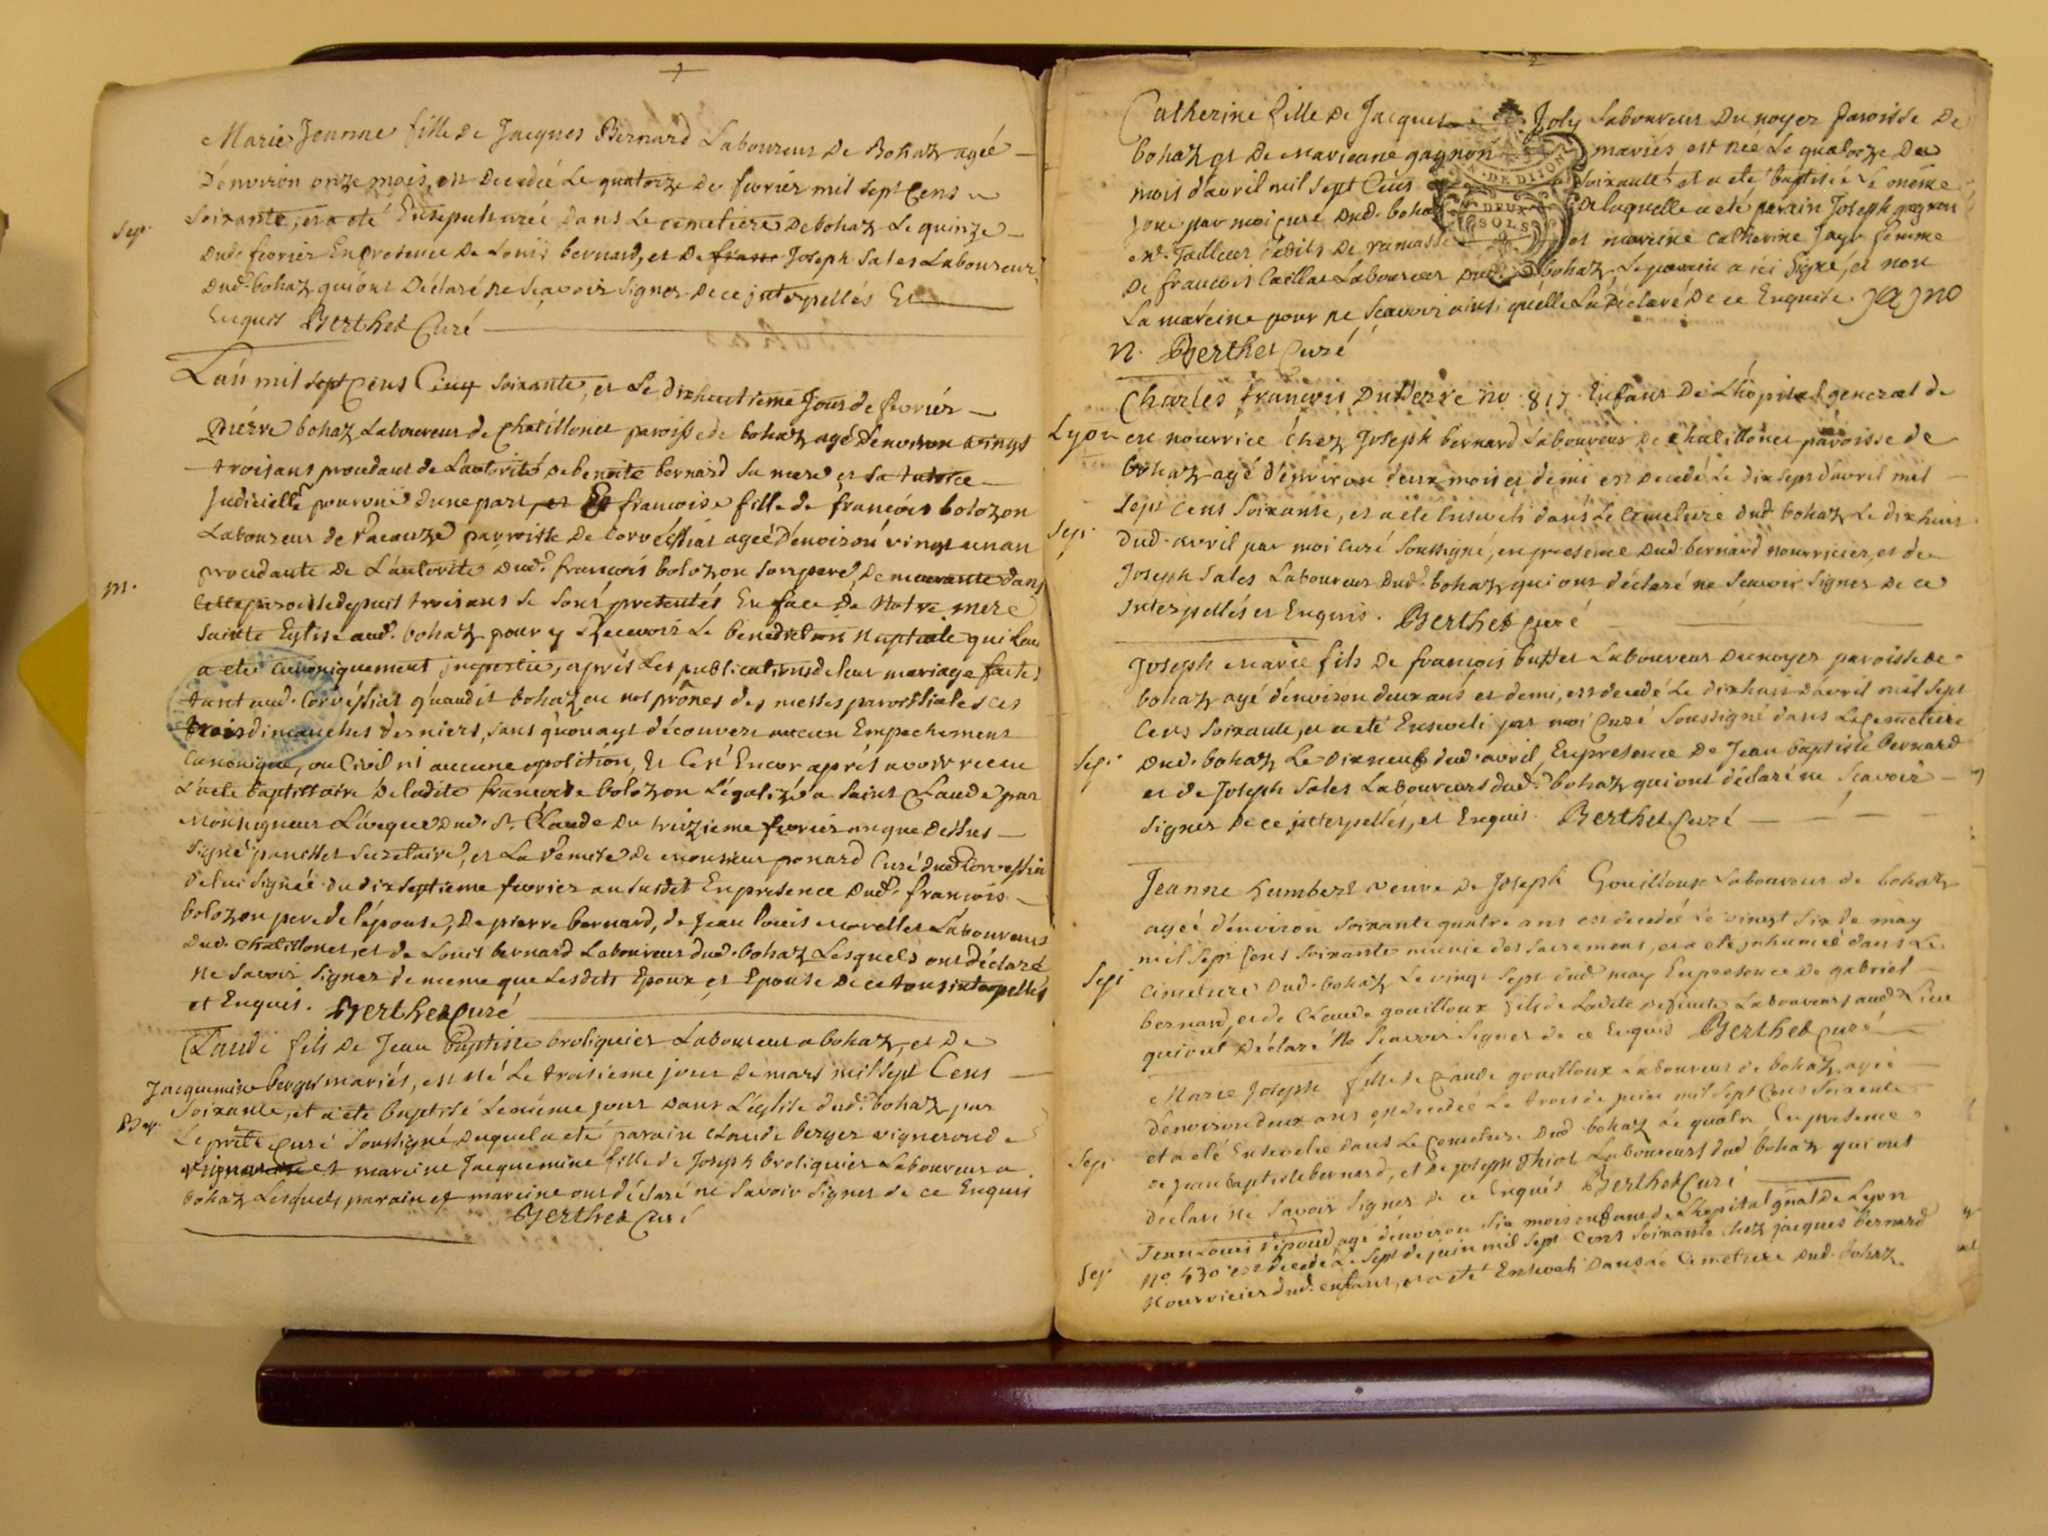 1
Marie Jeanne fille de Jacques Bernard Laboureur de Bohaz agée
d'environ onze mois, est decedée Le quatorze de fevrier mil sept Cens
Sep.
soixante, et a eté Ensepulturée dans Le cimetiere de bohaz Le quinze
dud. fevrier En presence de Louis bernard, et de franc Joseph Sales Laboureur
dud. bohaz qui ont Déclaré ne sçavoir signer de ce interpellés Et
Enquis Berthet Curé
L'an mil sept Cens Cinq soixante, et Le dixhuitieme Jour de fevrier
Piérre bohaz Laboureur de Chatillonet paroisse de bohaz agé d'environ vingt
trois ans procedant de L'autorité de benoite bernard sa mere et sa tutrice
Judicielle pourvuë d'une part, et Et francoise fille de françois bolozon
Laboureur de paroisse de Corvéssiat ageé d'environ vingt un an
m.
procedante de L'autorité dud. françois bolozon son pere, demeurante dans
cette paroisse depuis trois ans se sont presentés En face de Notre mere
sainte Eglise aud. bohaz pour y Recevoir Le benediction Nuptiale qui Leur
a eté canoniquement impartie, aprés Les publications de leur mariage faites
tant aud. Corvéssiat qu'audit bohaz au nos prônes des messes paroissiales ces
trois dimanches derniers, sans qu'on ayt découvert aucun Empechement
Canonique, ou Civil ni aucune oposition, Et Ce n' Encor aprés avoir receu
L'acte baptistaire de ladite francoise bolozon Légalizé a saint Claude par
Monseigneur L'évéque dud. St. Claude du treizieme fevrier an que dessus
signé secretaire, et La remise de monsieur ponard Curé dud. Corvessia
de lui signée du dixseptieme fevrier an susdit En presence dud. françois
bolozon pere de l'épouse, de pierre bernard, de Jean louis morellet Laboureurs
dud. chatillonet, et de Louis bernard Laboureur dud. bohaz Lesquels ont déclaré
ne savoir signer de meme que Lesdits Epoux et Epouse de ce tous interpellés
et Enquis. Berthet Curé
Claude fils de Jean Baptiste broliquier Laboureur a bohaz, et de
Jacquemine berger mariés, est né Le troisieme jour de mars mil sept Cens
soixante, et a eté baptisé Le même jour dans L'église dud. bohaz par
Bap.
Le prêtre Curé soussigné duquel a eté parain claude berger vigneron de
vigneron et mareine Jacquemine fille de Joseph broliquier Laboureur a
bohaz Lesquels parain et mareine ont déclaré ne savoir signer de ce Enquis
Berthet Curé
2
Catherine fille de Jacques Joly Laboureur du noyer paroisse de
bohaz et de Marieané gagnon mariés est née Le quatorze du
mois d'avril mil sept Cens soixante et a eté baptisée Le même
N. DE DIJON
jour par moi curé dud. boha de laquelle a eté parain Joseph gagnon
DEUX
SOLS
Tailleur d'abits de ramasse et mareine catherine Jayr femme
de francois Caillat Laboureur dud. bohaz Le parain a ici signé, et non
La maréine pour ne scavoir ainsi qu'elle La déclaré de ce Enquise. JGJNO
N. Berthet Curé
Charles françois Duterre no. 817 Enfant de L'hôpital general de
Lyon en nourrice chez Joseph bernard Laboureur de chatillonet paroisse de
bohaz agé d'environ deux mois et demi est decedé Le dix sept d'avril mil
sept cens soixante, et a eté Enseveli dans Le cimetiere dud. bohaz Le dixhuit
Sep.
dud. avril par moi curé soussigné, en presence dud. bernard nourricier, et de
Joseph sales Laboureur dud. bohaz qui ont déclaré ne sçavoir signer de ce
interpellés et Enquis. Berthet Curé
Joseph Marie fils de françois buttet Laboureur du noyer paroisse de
bohaz agé d'environ deux ans et demi, est decedé Le dixhuit d'avril mil sept
Cens soixante, et a eté Enseveli par moi Curé soussigné dans Le cimetiere
Sep.
dud. bohaz Le dixneuf dud. avril, En presence de Jean baptiste bernard
et de Joseph sales Laboureurs dud. bohaz qui ont déclaré ne scavoir
signer de ce interpellés, et Enquis. Berthet Curé
Jeanne humbert veuve de Joseph Gouilloux Laboureur de bohaz
ageé d'environ soixante quatre ans est decedée Le vingt six de may
mil sept Cens soixante munie des sacremens, et a eté inhumeé dans Le
Sep.
cimetiere dud. bohaz Le vingt sept dud. may En presence de gabriel
bernard, et de Claude gouilloux fils de Ladite defunte Laboureurs aud. Lieu
qui ont déclaré Ne scavoir signer de ce Enquis Berthet Curé
Marie Joseph fille de Claude gouilloux Laboureur de bohaz agée
d'environ deux ans est decedée Le trois de juin mil sept Cens soixante
et a eté Ensevelie dans Le Cimetiere dud. bohaz Le quatre En presence
Sep.
de Jean baptiste bernard, et de joseph Thiot Laboureurs dud. bohaz qui ont
declaré Ne savoir signer de ce Enquis Berthet Curé
Jean Louis agé d'environ six mois enfant de L'hopital gnâl de Lyon
No. 430 est decedé Le sept de juin mil sept Cens soixante chez jacques bernard
Sep.
Nourricier dud. enfant, et a eté Enseveli dans Le Cimetiere dud. bohaz